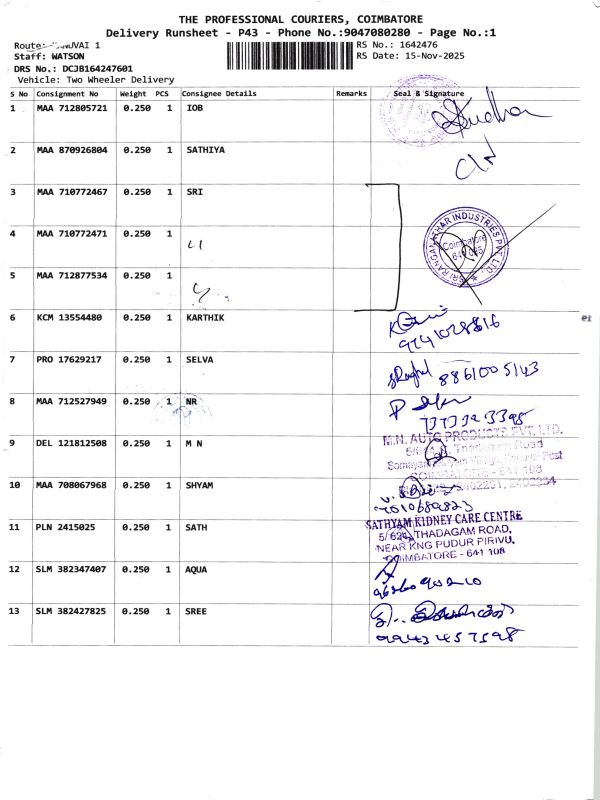 THE PROFESSIONAL COURIERS, COIMBATORE
Delivery Runsheet - P43 - Phone No.:9047080280 - Page No.:1
Route: VAI 1
RS No.: 1642476
Staff: WATSON
RS Date: 15-Nov-2025
DRS No.: DCJB164247601
Vehicle: Two Wheeler Delivery
S No Consignment No Weight PCS Consignee Details Remarks Seal & Signature
1 MAA 712805721 0.250 1 IOB
2 MAA 870926804 0.250 1 SATHIYA
3 MAA 710772467 0.250 1 SRI
4 MAA 710772471 0.250 1
5 MAA 712877534 0.250 1
SRI RANGANATHAR INDUSTRIES PVT. LTD.
Coimbatore
6 KCM 13554480 0.250 1 KARTHIK
7 PRO 17629217 0.250 1 SELVA
8861005143
8 MAA 712527949 0.250 1 NR
9 DEL 121812508 0.250 1 M N
M.N. AUTO PRODUCTS PVT. LTD.
Thadagam Road
Post
COIMBATORE - 641 108
10 MAA 708067968 0.250 1 SHYAM
11 PLN 2415025 0.250 1 SATH
SATHYAM KIDNEY CARE CENTRE
THADAGAM ROAD,
NEAR KNG PUDUR PIRIVU,
COIMBATORE - 641 108
12 SLM 382347407 0.250 1 AQUA
13 SLM 382427825 0.250 1 SREE
9943457598